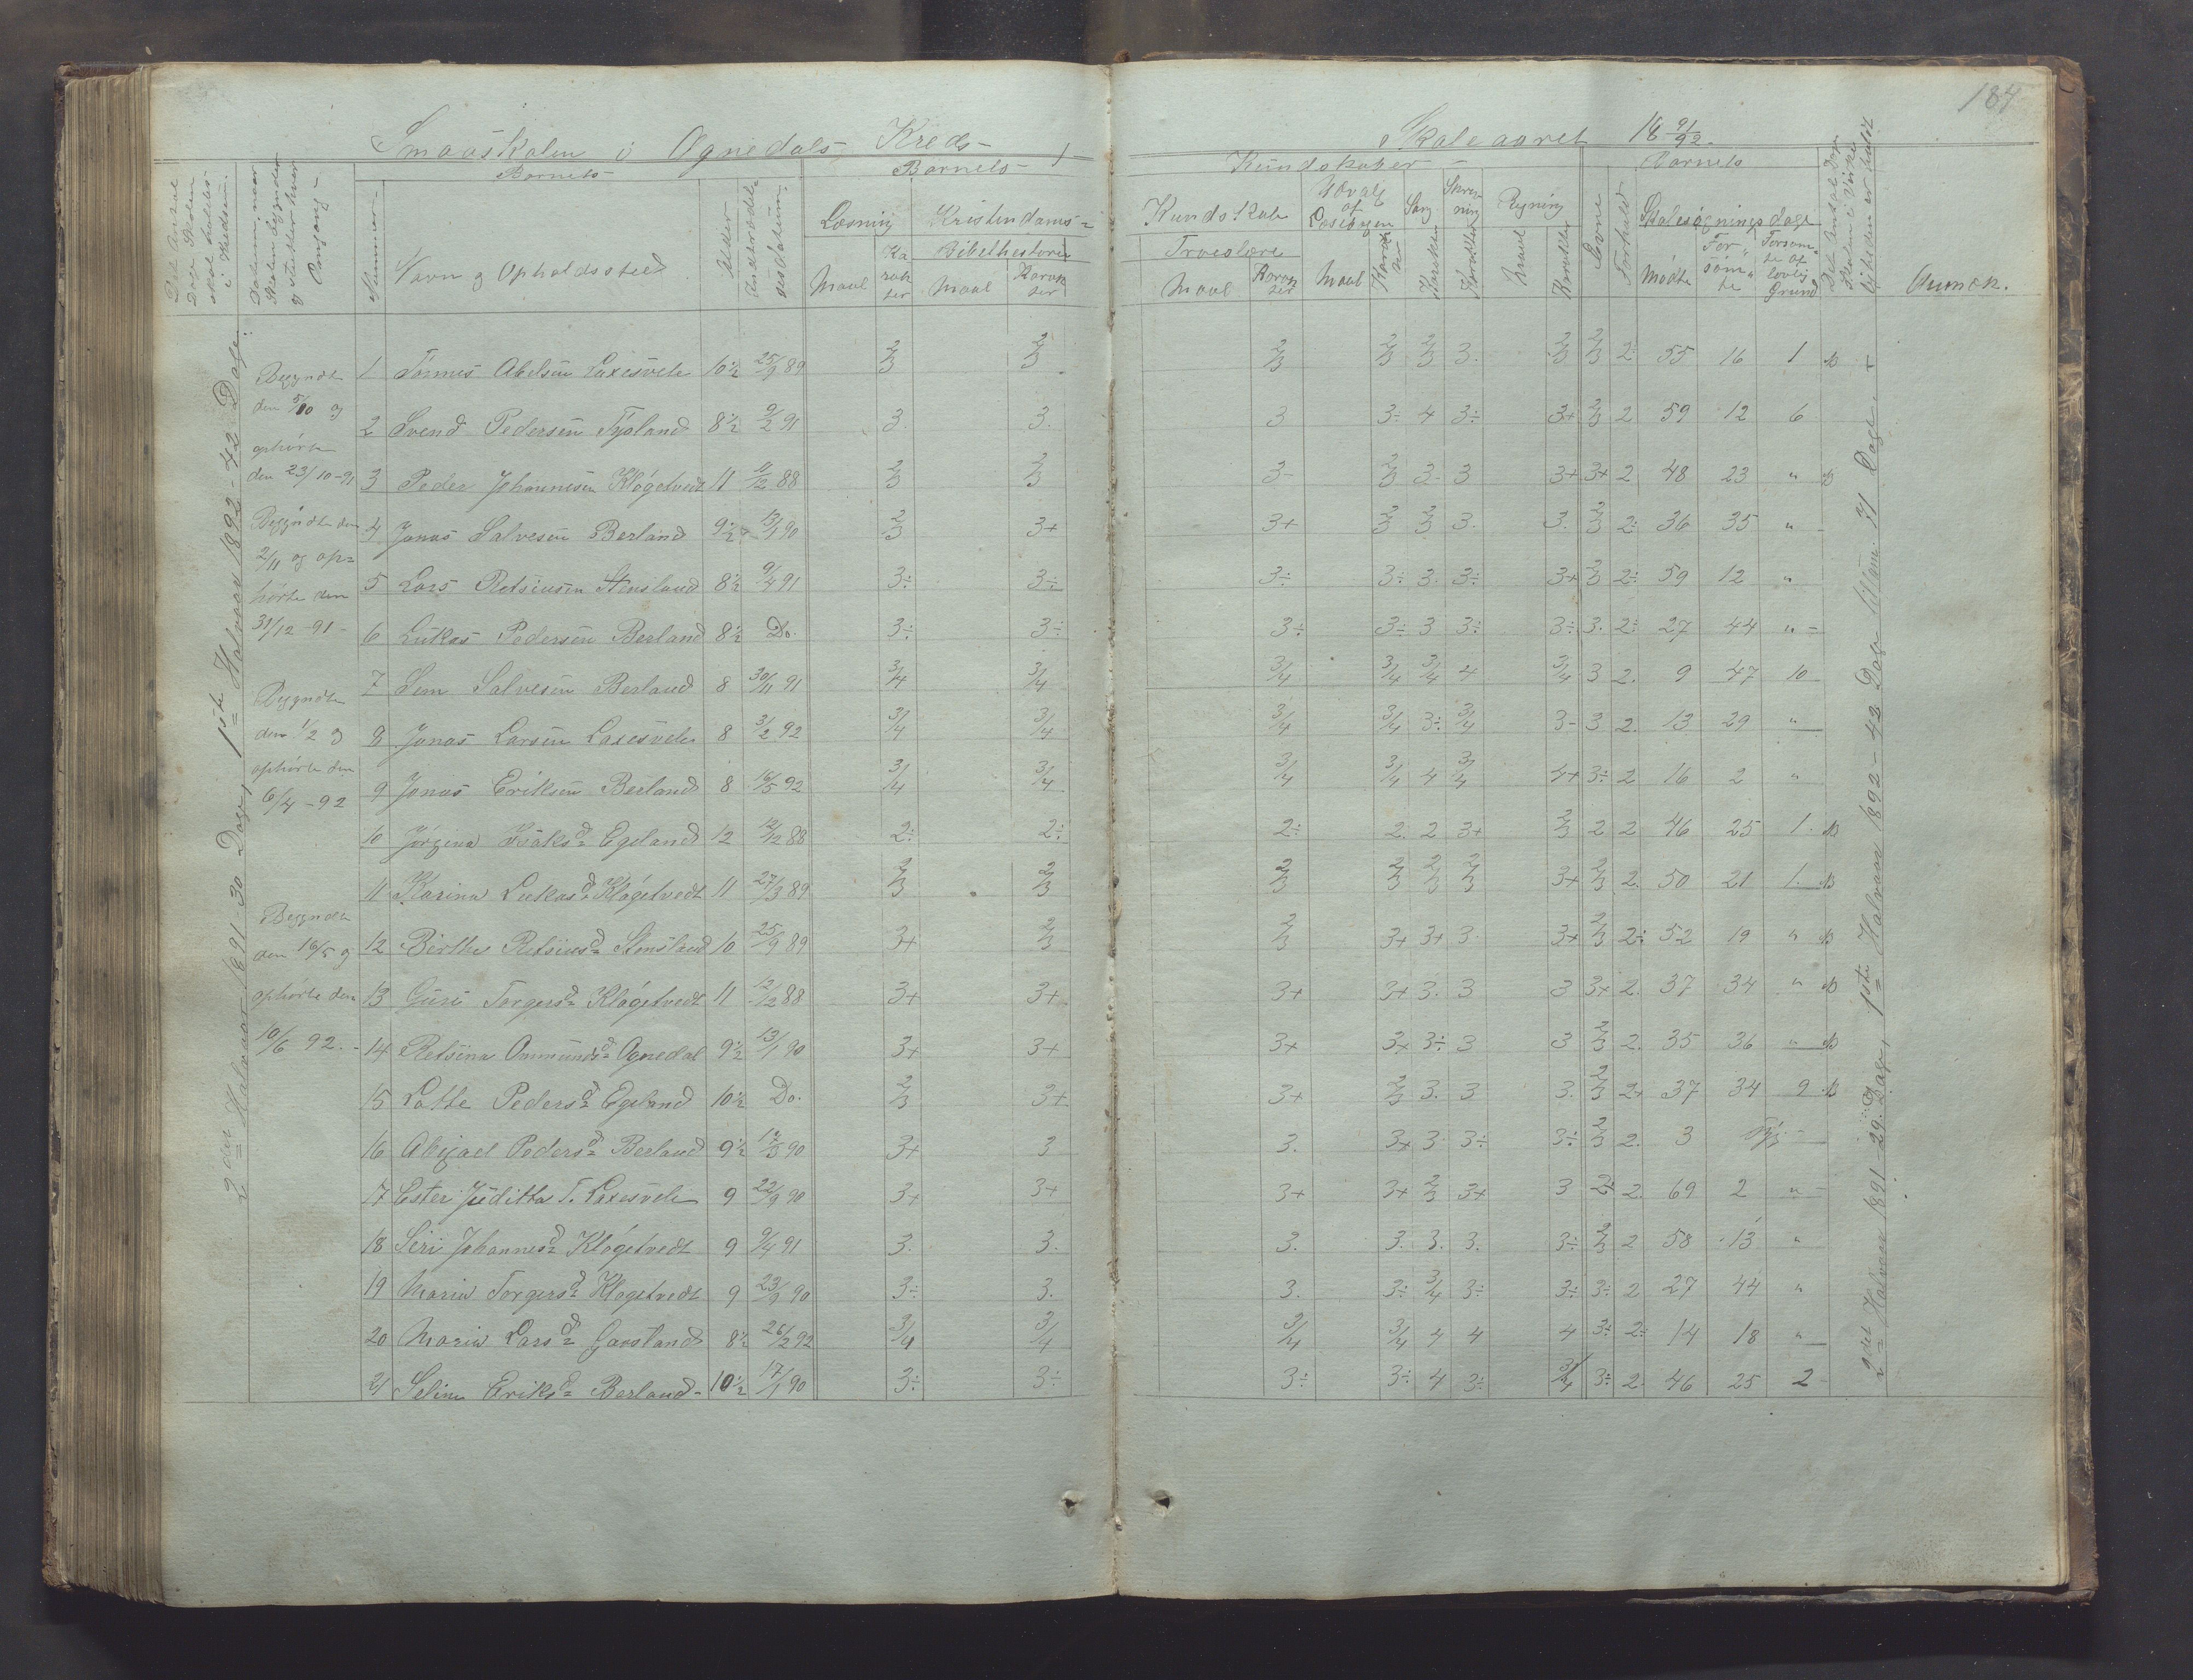 184
Smaaskolen i Ognedals Kreds
Skoleaaret 18 91/92.
Barnets
Barnets
Kundskaber
Barnets
Nummer
Navn og Opholdssted
Alder
Indtrædelsesdatum
Læsning
Kristendoms-
Kundskab
Udvalg af Læsebogen
Sang
Skrivning
Regning
Evne
Forhold
Skolesøgningsdage
Maal
Karakter
Bibelhistorie
Maal
Karakter
Troeslære
Maal
Karakter
Maal
Karakter
Karakter
Karakter
Maal
Karakter
Mødte
Forsømte
Forsømte af lovlig Grund
Anmærk.
2det Halvaar 1891 - 30 Dage, 1ste Halvaar 1892 - 42 Dage.
Begyndte
den 5/10 og
ophørte
den 23/10-91
Begyndte den
2/11 og op=
hørte den
31/12-91-
Begyndte
den 1/2 og
ophørte den
6/4-92
Begyndte
den 16/5 og
ophørte den
10/6 92.-
1 Tønnes Abelsen Laxesvele 10½ 25/9 89 2/3 2/3 2/3 2/3 2/3 3. 2/3 2/3 2÷ 55 16 1
2 Svend Pedersen Tysland 8½ 9/2 91 3. 3. 3 3÷ 4 3÷ 3+ 2/3 2 59 12 6
3 Peder Johannesen Kløgetvedt 11 11/12 88 2/3 2/3 3- 2/3 3- 3 3+ 3+ 2 48 23 "
4 Jonas Salvesen Berland 9½ 13/1 90 2/3 3+ 3+ 2/3 2/3 3. 3. 2/3 2÷ 36 35 "
5 Lars Retsiusen Stensland 8½ 9/4 91 3÷ 3÷ 3÷ 3÷ 3. 3÷ 3+ 2/3 2÷ 59 12 "
6 Lukas Pedersen Berland 8½ Do. 3÷ 3÷ 3÷ 3÷ 3 3÷ 3÷ 3. 2÷ 27 44 "
7 Sem Salvesen Berland 8 30/11 91 3/4 3/4 3/4 3/4 3/4 4 3/4 3 2. 9 47 10
8 Jonas Larsen Laxesvele 8 3/2 92 3/4 3/4 3/4 3/4 3÷ 3/4 3- 3 2. 13 29 "
9 Jonas Eriksen Berland 8 16/5 92 3/4 3/4 3/4 3/4 4 3/4 4+ 3÷ 2 16 2 "
10 Jørgina Isaksd Egeland 12 12/12 88 2÷ 2÷ 2÷ 2. 2 3+ 2/3 2 2 46 25 1.
11 Karina Lukasd Kløgetvedt 11 27/3 89 2/3 2/3 2/3 2/3 2/3 2/3 3+ 2/3 2. 50 21 1.
12 Birthe Retsiusd Stensland 10 25/9 89 3+ 2/3 2/3 3+ 3+ 3. 3+ 2/3 2÷ 52 19 "
13 Guri Torgersd Kløgetvedt 11 12/12 88 3+ 3+ 3+ 3+ 3. 3 3 3+ 2. 37 34 "
14 Retsina Ommundsd Ognedal 9½ 13/1 90 3+ 3+ 3+ 3+ 3÷ 3 3 2/3 2. 35 36 "
15 Lotte Pedersd Egeland 10½ Do. 2/3 3+ 3+ 2/3 3. 3 3. 2/3 2+ 37 34 9
16 Abigael Pedersd Berland 9½ 90 3+ 3 3. 3+ 3 3÷ 3÷ 2/3 2. 3 Syg
17 Ester Juditta T. Laxesvele 9 22/9 90 3+ 3+ 3+ 3+ 2/3 3+ 3 2. 69 2 "
18 Siri Johannesd Kløgetvedt 9 9/4 91 3. 3. 3. 3. 3. 3. 3÷ 2/3 2 58 13 "
19 Maria Torgersd Kløgetvedt 9 23/9 90 3÷ 3. 3. 3÷ 3/4 3÷ 3÷ 3÷ 2 27 44 "
20 Maria Larsd Gavsland 8½ 26/2 92 3/4 3/4 3/4 3/4 4 4 4 2÷ 14 18 "
21 Selina Eriksd Berland 10½ 17/1 90 3÷ 3÷ 3÷ 3÷ 4 3÷ 3/4 3÷ 2. 46 25 2
2det Halvaar 1891 - 29. Dage, 1ste Halvaar 1892 - 42 Dage tilsam. 71 Dage.